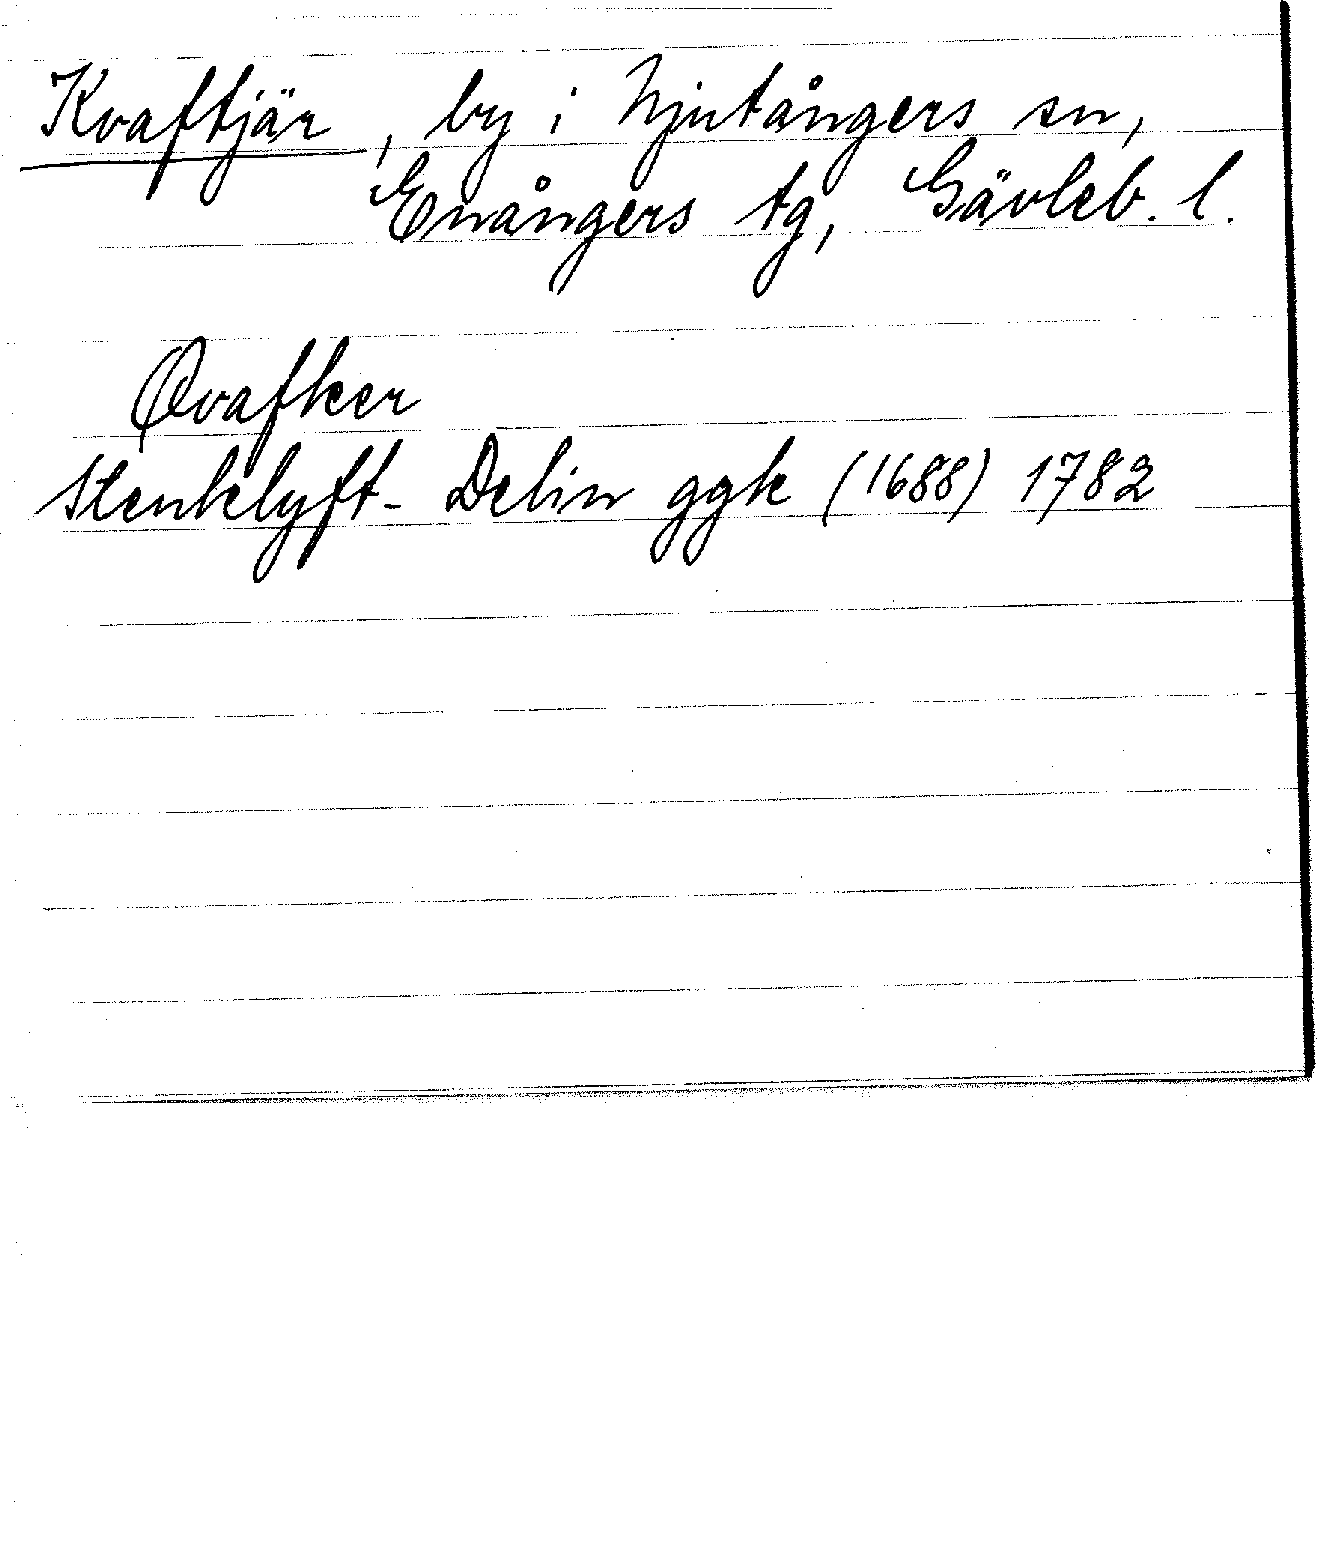 Kvaftjär, by i Njutångers sn,
Enångers tg, Gävleb. l.
Qvafker
Stenklyft- Delin ggk (1688) 1782